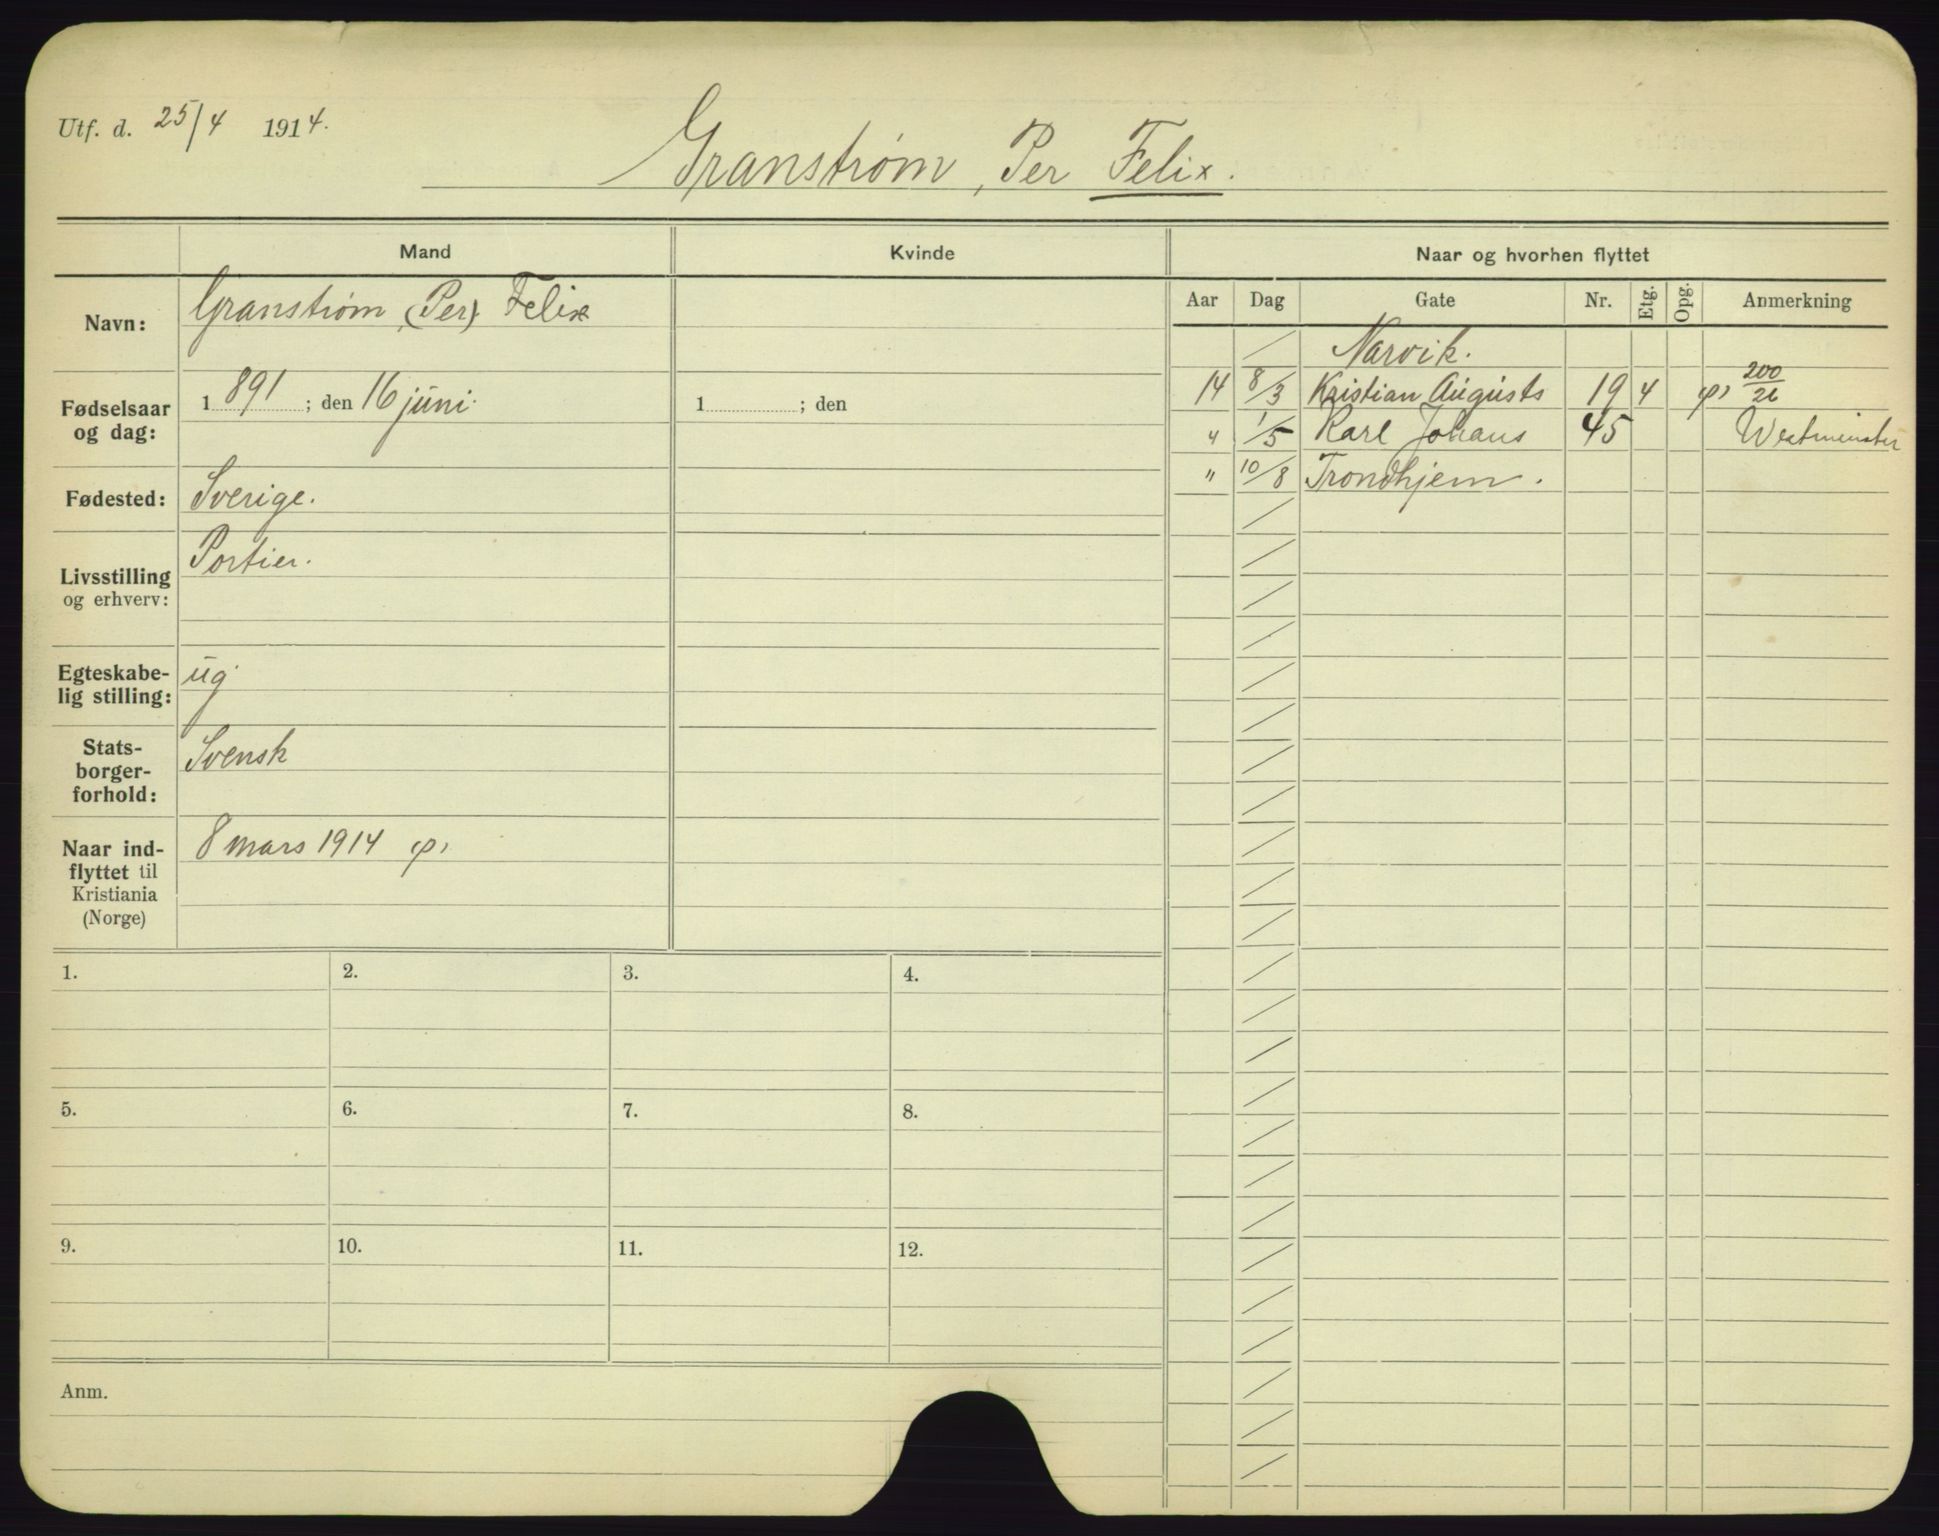 Utf. d. 25/4 1914.
Granstrøm, Per Felix.
Mand
Kvinde
Naar og hvorhen flyttet
Navn:
Granstrøm, (Per) Felix
Fødselsaar
og dag:
1891; den 16 juni.
1 ; den
Fødested:
Sverige.
Livsstilling
og erhverv:
Portier.
Egteskabe-
lig stilling:
ug.
Stats-
borger-
forhold:
Svensk
Naar ind-
flyttet til
Kristiania
(Norge)
8 mars 1914
Aar Dag Gate Nr. Etg. Opg. Anmerkning
/ Narvik.
14 8/3 Kristian Augusts 19 4 200/26
" 1/5 Karl Johans 45 Westminster
" 10/8 Trondhjem.
1. 2. 3. 4.
5. 6. 7. 8.
9. 10. 11. 12.
Anm.